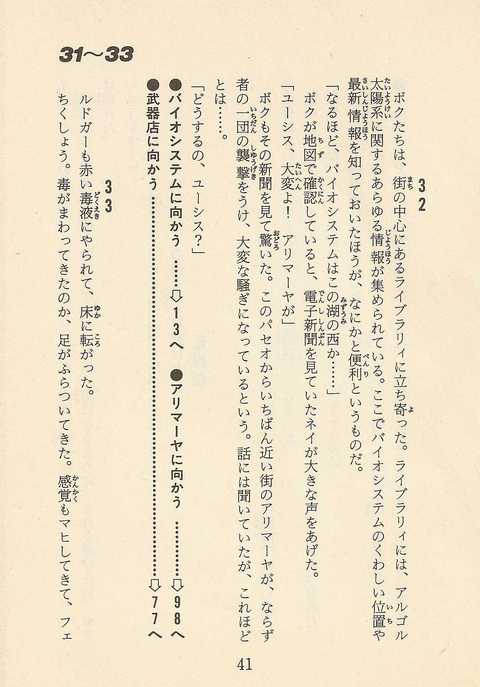 31〜33
32
ボクたちは、街の中心にあるライブラリィに立ち寄った。ライブラリィには、アルゴル
太陽系に関するあらゆる情報が集められている。ここでバイオシステムのくわしい位置や
最新情報を知っておいたほうが、なにかと便利というものだ。
「なるほど、バイオシステムはこの湖の西か……」
ボクが地図で確認していると、電子新聞を見ていたネイが大きな声をあげた。
「ユーシス、大変よ！　アリマーヤが」
ボクもその新聞を見て驚いた。このパセオからいちばん近い街のアリマーヤが、ならず
者の一団の襲撃をうけ、大変な騒ぎになっているという。話には聞いていたが、これほど
とは……。
「どうするの、ユーシス？」
●バイオシステムに向かう ……⇨13へ　●アリマーヤに向かう ………⇨98へ
●武器店に向かう ………………………………………………⇨77へ
33
ルドガーも赤い毒液にやられて、床に転がった。
ちくしょう。毒がまわってきたのか、足がふらついてきた。感覚もマヒしてきて、フェ
41